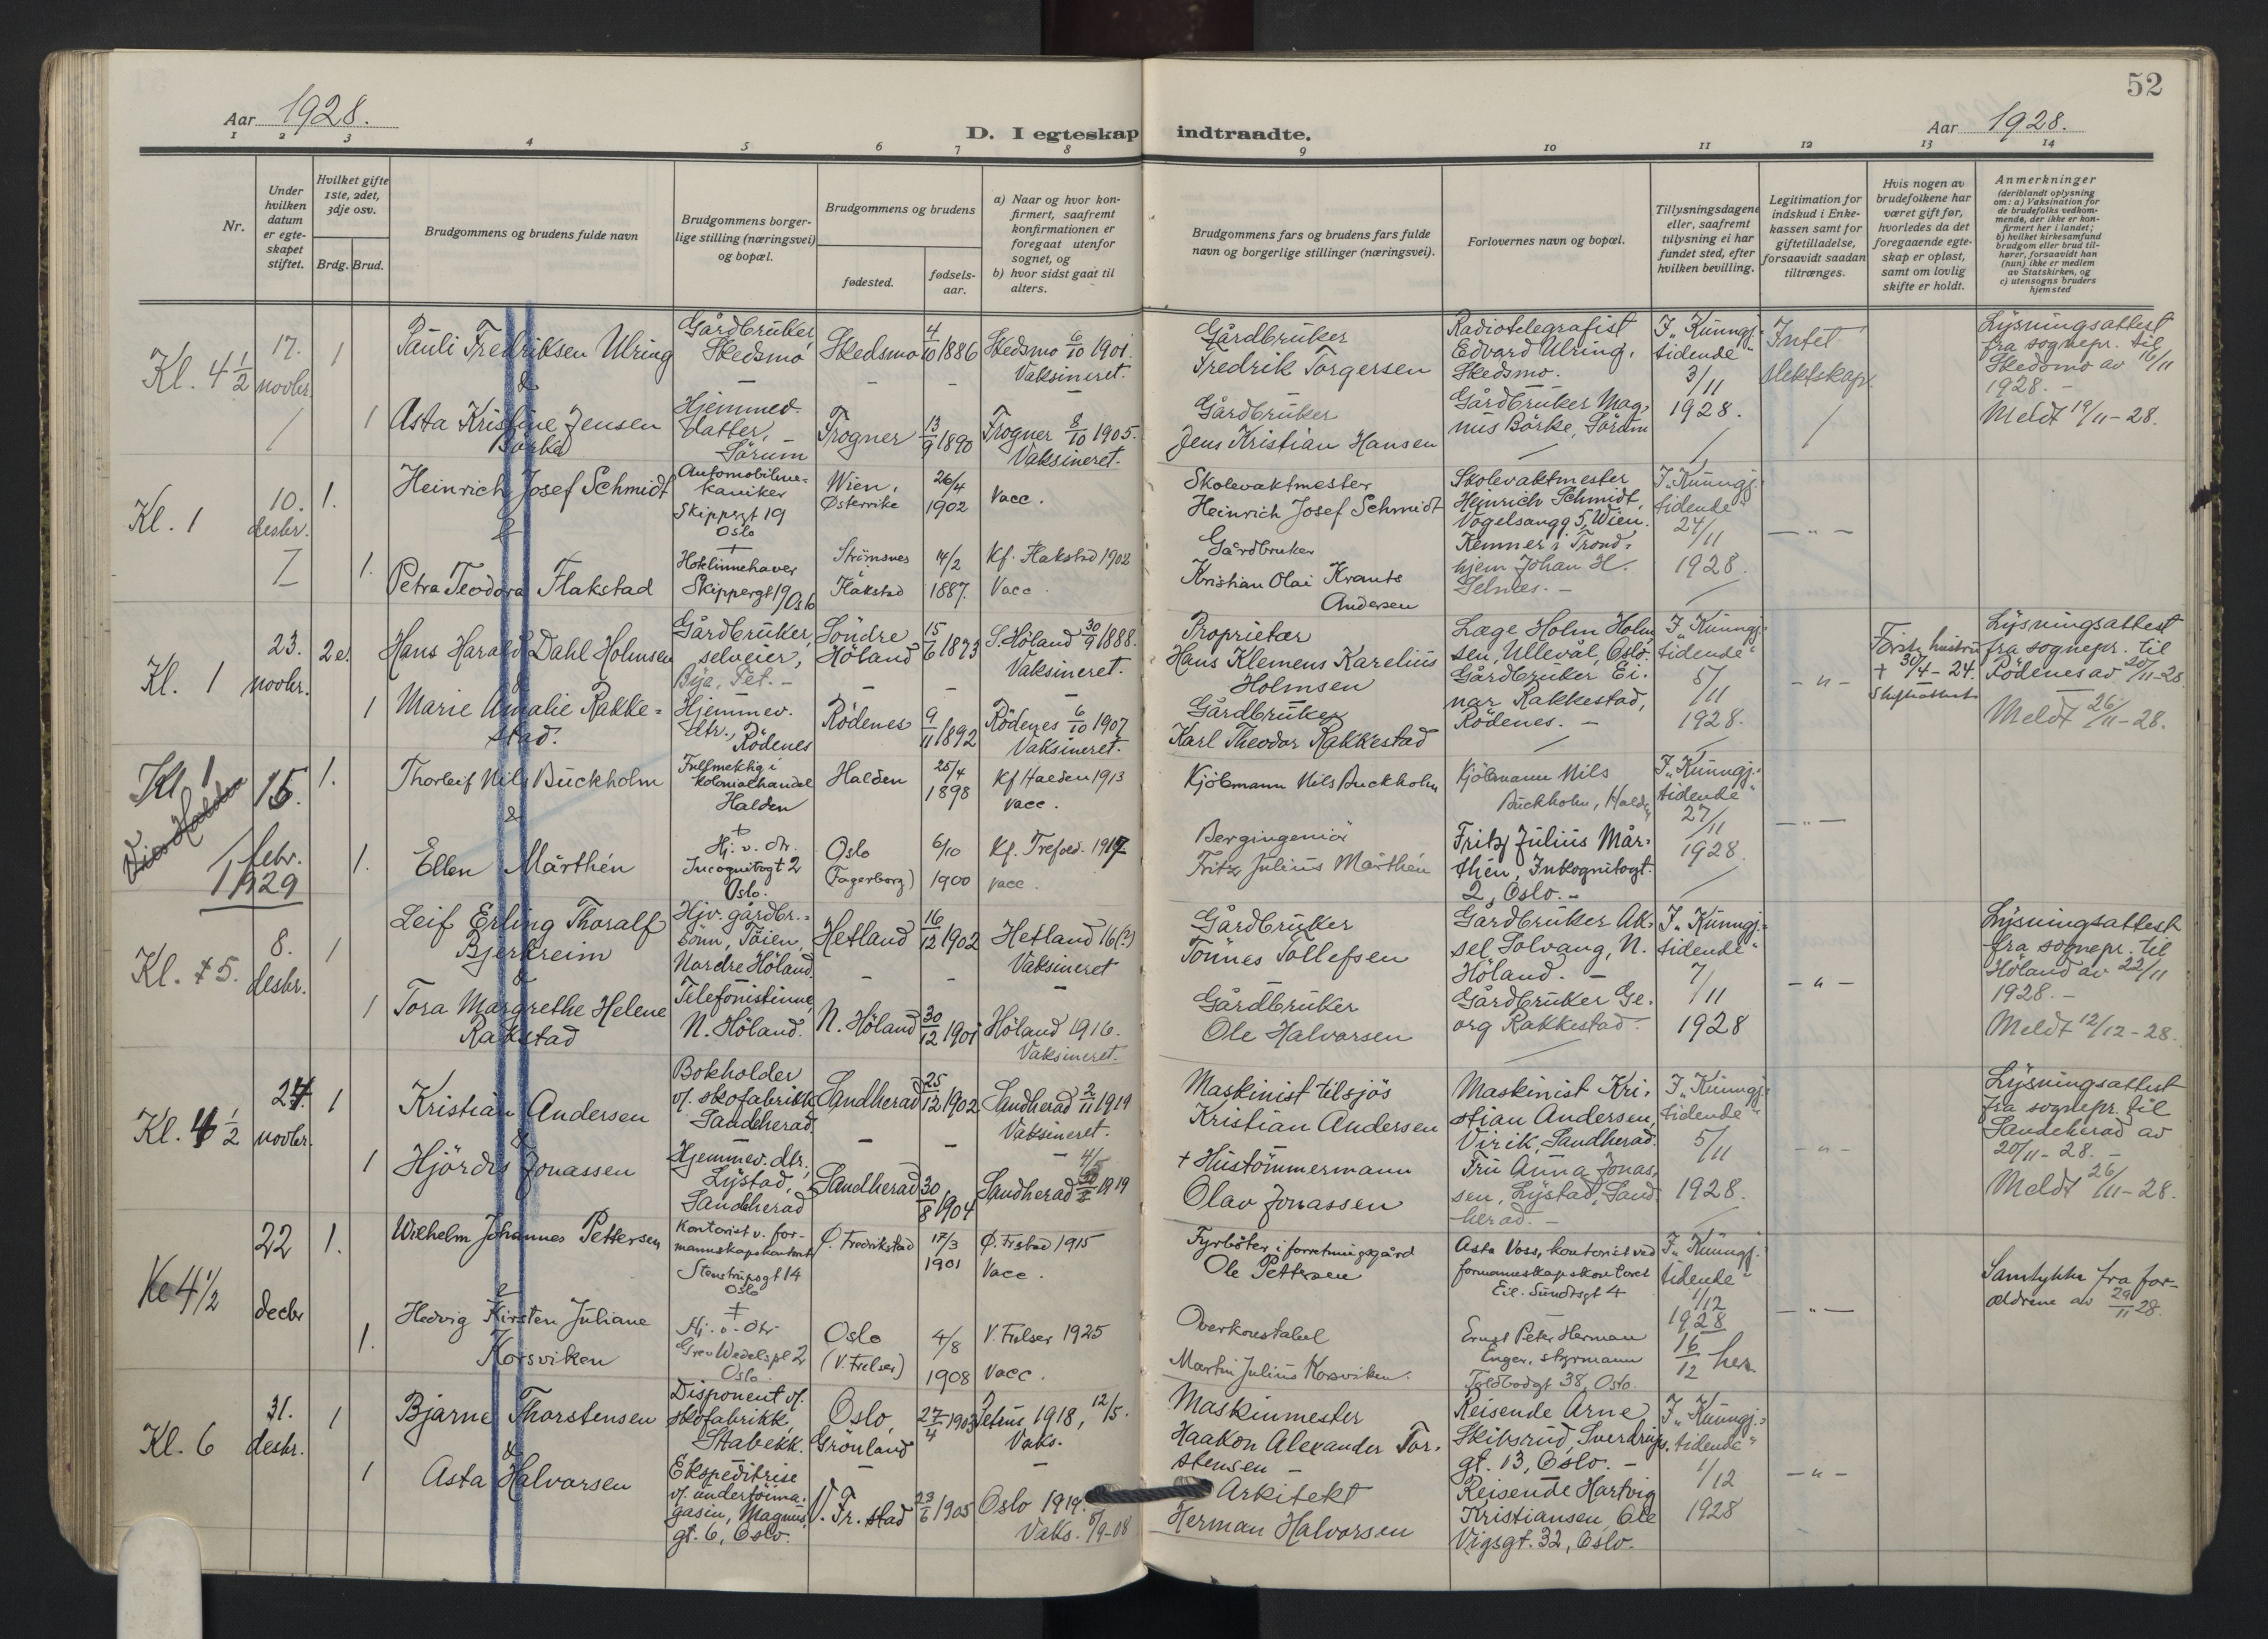 52
Aar 1928.
D. I egteskap indtraadte.
Aar 1928.
1 2 3 4 5 6 7 8 9 10 11 12 13 14
Nr.
Under
hvilken
datum
er egte-
skapet
stiftet.
Hvilket gifte
1ste, 2det,
3dje osv.
Brdg. Brud.
Brudgommens og brudens fulde navn
Brudgommens borger-
lige stilling (næringsvei)
og bopæl.
Brudgommens og brudens
fødested.
fødsels-
aar.
a) Naar og hvor kon-
firmert, saafremt
konfirmationen er
foregaat utenfor
sognet, og
b) hvor sidst gaat til
alters.
Brudgommens fars og brudens fars fulde
navn og borgerlige stillinger (næringsvei).
Forlovernes navn og bopæl.
Tillysningsdagene
eller, saafremt
tillysning ei har
fundet sted, efter
hvilken bevilling.
Legitimation for
indskud i Enke-
kassen samt for
giftetilladelse,
forsaavidt saadan
tiltrænges.
Hvis nogen av
brudefolkene har
været gift før,
hvorledes da det
foregaaende egte-
skap er opløst,
samt om lovlig
skifte er holdt.
Anmerkninger
(deriblandt oplysning
om: a) Vaksination for
de brudefolks vedkom-
mende, der ikke er kon-
firmert her i landet;
b) hvilket kirkesamfund
brudgom eller brud til-
hører, forsaavidt han
(hun) ikke er medlem
av Statskirken, og
c) utensogns bruders
hjemsted
Kl. 4 1/2
17.
novbr.
1
Pauli Fredriksen Ulring
&
Gårdbruker,
Skedsmo
Skedsmo
4/10 1886
Skedsmo 6/10 1901.
Vaksineret.
Gårdbruker
Fredrik Torgersen
Radiotelegrafist
Edvard Ulring,
Skedsmo.
I „Kunngj.-
tidende"
3/11
1928.
Intet
slektskap.
Lysningsattest
fra sognepr. til
Skedsmo av 16/11
1928. -
Meldt 19/11-28.
1
Asta Kristine Jensen
Børke
Hjemmev.
datter,
Sørum
Frogner
13/9 1890
Frogner 8/10 1905.
Vaksineret.
Gårdbruker
Jens Kristian Hansen
Gårdbruker Mag-
nus Børke, Sørum
Kl. 1
10.
desbr.
1.
Heinrich Josef Schmidt
&
Automobilme-
kaniker
Skippergt 19
Oslo
Wien,
Østerrike
26/4
1902
Vacc.
Skolevaktmester
Heinrich Josef Schmidt
Skolevaktmester
Heinrich Schmidt,
Vogelsangg 5, Wien.
I „Kunngj.-
tidende"
24/11
1928.
- " -
1.
Petra Teodora Flakstad
Hotelinnehaver
Skippergt 19 Oslo
Strömsnes
i
Flakstad
14/2
1887.
Kf. Flakstad 1902
Vacc.
Gårdbruker
Kristian Olai Krants
Andersen
Kemner i Trond-
hjem Johan H.
Selnes. -
Kl. 1
23.
novbr.
2e.
Hans Harald Dahl Holmsen
&
Gårdbruker,
selveier,
Søndre
Höland
15/6 1873
S. Höland 30/9 1888.
Vaksineret.
Proprietær
Hans Klemens Karelius
Holmsen
Læge Holm Holm
sen, Ullevål, Oslo.
I „Kunngj.-
tidende"
5/11
1928.
- " -
Første hustru
† 30/4-24.
Skifteattest
Lysningsattest
fra sognepr. til
Rödenes av 20/11-28
Meldt 26/11-28.
1
Marie Amalie Rakke-
stad.
Hjemmev.
dtr.,
Rödenes
Rödenes
9/11 1892
Rödenes 6/10 1907
Vaksineret.
Gårdbruker
Karl Theodor Rakkestad
Gårdbruker Ei-
nar Rakkestad,
Rödenes. -
Kl 1
15.
febr.
1929
1.
Thorleif Nils Buckholm
&
Fullmektig i
kolonialhandel
Halden
Halden
25/4
1898
Kf Halden 1913
vacc.
Kjöbmann Nils Buckholm
Kjöbmann Nils
Buckholm, Halden
I „Kunngj.-
tidende"
27/11
1928.
- " -
1.
Ellen Mårthén
Hj. v. dtr.
Incognitogt 2
Oslo.
Oslo
(Fagerborg)
6/10
1900
Kf. Trefold. 1917
vacc.
Bergingeniör
Fritz Julius Mårthén
Fritz Julius Mår-
thén, Inkognitogt.
2, Oslo. -
Kl. 5.
8.
desbr.
1
Leif Erling Thoralf
Bjerkreim
&
Hjv. gårdbr.-
sönn, Töien,
Nordre Höland
Hetland
16/12 1902
Hetland 16(?)
Vaksineret
Gårdbruker
Tönnes Tollefsen
Gårdbruker Ak-
sel Solvang, N.
Höland. -
I „Kunngj.-
tidende"
7/11
1928
- " -
Lysningsattest
fra sognepr. til
Höland av 22/11
1928. -
Meldt 12/12-28.
1
Tora Margrethe Helene
Rakstad
Telefonistinne,
N. Höland.
N. Höland
30/12 1901
Höland 1916.
Vaksineret.
Gårdbruker
Ole Halvorsen
Gårdbruker Ge-
org Rakkestad.
Kl. 4 1/2
24.
novbr.
1
Kristian Andersen
&
Bokholder
v/. skofabrikk
Sandeherad.
Sandherad
25/12 1902
Sandherad 2/11 1919
Vaksineret.
Maskinist tilsjøs
Kristian Andersen
Maskinist Kri-
stian Andersen,
Virik, Sandherad.
I „Kunngj.-
tidende"
5/11
1928.
- " -
Lysningsattest
fra sognepr. til
Sandeherad av
20/11-28. -
Meldt 26/11-28.
1
Hjördis Jonassen
Hjemmev. dtr.,
Lystad,
Sandeherad
Sandherad
30/8 1904
Sandherad 1919
† Hustömmermann
Olav Jonassen
Fru Anna Jonas-
sen, Lystad, Sand-
herad. -
Kl 4 1/2
22
decbr
1.
Wilhelm Johannes Pettersen
&
Kontorist v. for-
mannskapskontoret
Stenstrupsgt 14
Oslo
Ø. Fredrikstad
17/3
1901
Ø. Frstad 1915
Vacc.
Fyrböter i forretningsgård
Ole Pettersen
Asta Voss, kontorist ved
formannskapskontoret
Eil. Sundtsgt 4
I „Kunngj.-
tidende"
1/12
1928
16/12 her
- " -
Samtykke fra for-
ældrene av 29/11 28.
1.
Hedvig Kirsten Juliane
Korsviken
Hj. v. dtr
Grev Wedelspl 2
Oslo.
Oslo
(V. Frelser)
4/8
1908
V. Frelser 1925
Vacc.
Overkonstabel
Martin Julius Korsviken.
Ernst Peter Herman
Enger, styrmann
Toldbodgt 38, Oslo.
Kl. 6
31.
desbr.
1
Bjarne Thorstensen
&
Disponent v/.
skofabrikk,
Stabekk.
Oslo,
Grönland
27/4 1903
Petrus 1918, 12/5.
Vaks.
Maskinmester
Haakon Alexander Tor-
stensen -
Reisende Arne
Skibsrud, Sverdrups-
gt. 13, Oslo. -
I „Kunngj.-
tidende"
1/12
1928
- " -
1
Asta Halvorsen
Ekspeditrise
v/. undertöima-
gasin, Magnus-
gt. 6, Oslo.
V. Fr. stad
23/6 1905
Oslo 1919.
Vaks. 5/9-08
Arkitekt
Herman Halvorsen
Reisende Hartvig
Kristiansen, Ole
Vigsgt. 32, Oslo.